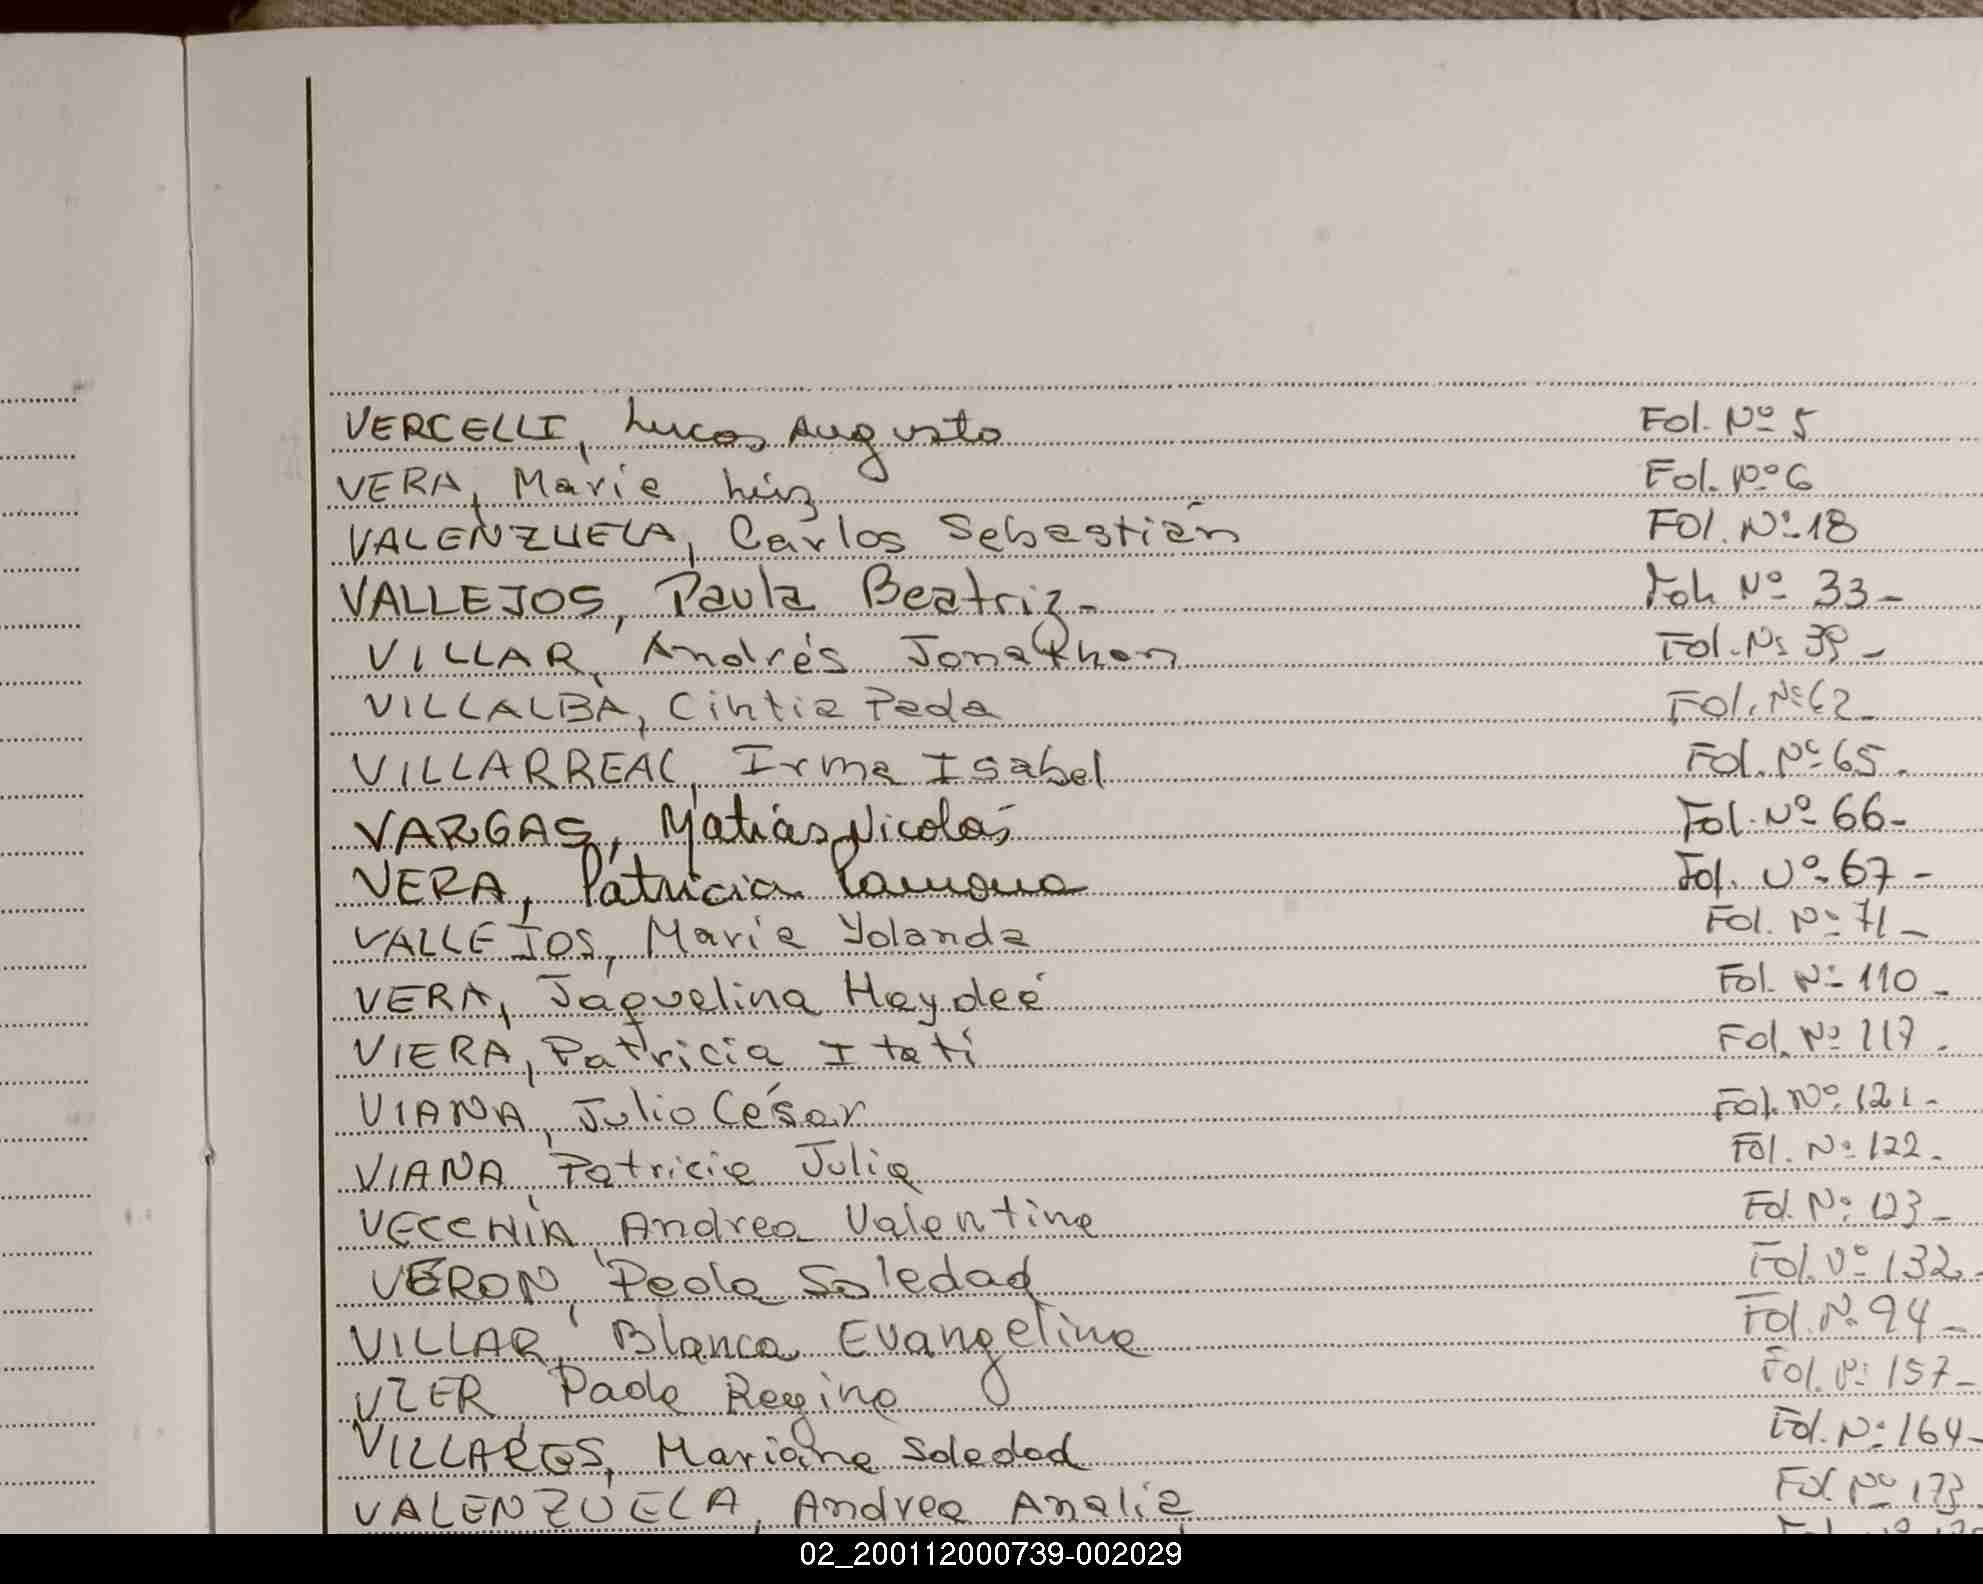 VERCELLI, Lucas Augusto Fol. Nº 5
VERA, Maria Luz Fol. Nº 6
VALENZUELA, Carlos Sebastián FOl. Nº 18
VALLEJOS, Paula Beatriz - Fol. Nº 33 -
VILLAR, Andrés Jonathan Fol. Nº 39 -
VILLALBA, Cintia Paola Fol. Nº 62 -
VILLARREAL, Irma Isabel Fol. Nº 65 .
VARGAS, Matías Nicolás Fol. Nº 66 -
VERA, Patricia Ramona Fol. Nº 67 -
VALLEJOS, Maria Yolanda Fol. Nº 71 -
VERA, Jaquelina Haydeé Fol. Nº 110 -
VIERA, Patricia Itatí Fol. Nº 117 .
VIANA, Julio César Fol. Nº 121 -
VIANA, Patricia Julia Fol. Nº 122 .
VECCHIA, Andrea Valentina Fol. Nº 123 -
VERON, Paola Soledad Fol. Nº 132 -
VILLAR, Blanca Evangelina Fol. Nº 94 -
Regina Fol. Nº 157 -
Mariana Soledad Fol. Nº 164 -
VALENZUELA, Andrea Analia Fol. Nº 173
02_200112000739-002029